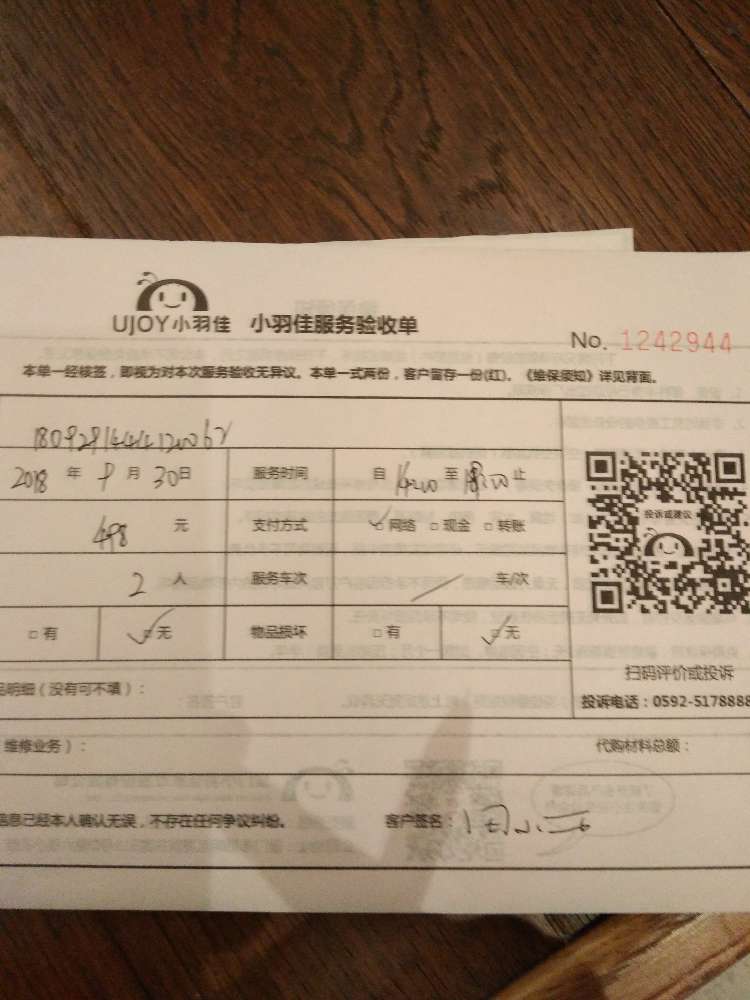 UJOY小羽佳 小羽佳服务验收单
No. 1242944
本单一经核签，即视为对本次服务验收无异议。本单一式两份，客户留存一份(红)。《维保须知》详见背面。
2018 年 9 月 30 日 服务时间 自 14:00 至 18:00 止
498 元 支付方式 ☑网络 □现金 □转账
投诉或建议
2 人 服务车次 / 车/次
□有 ☑无 物品损坏 □有 ☑无
扫码评价或投诉
品明细（没有可不填）：
投诉电话：0592-5178888
维修业务）： 代购材料总额：
信息已经本人确认无误，不存在任何争议纠纷。 客户签名：